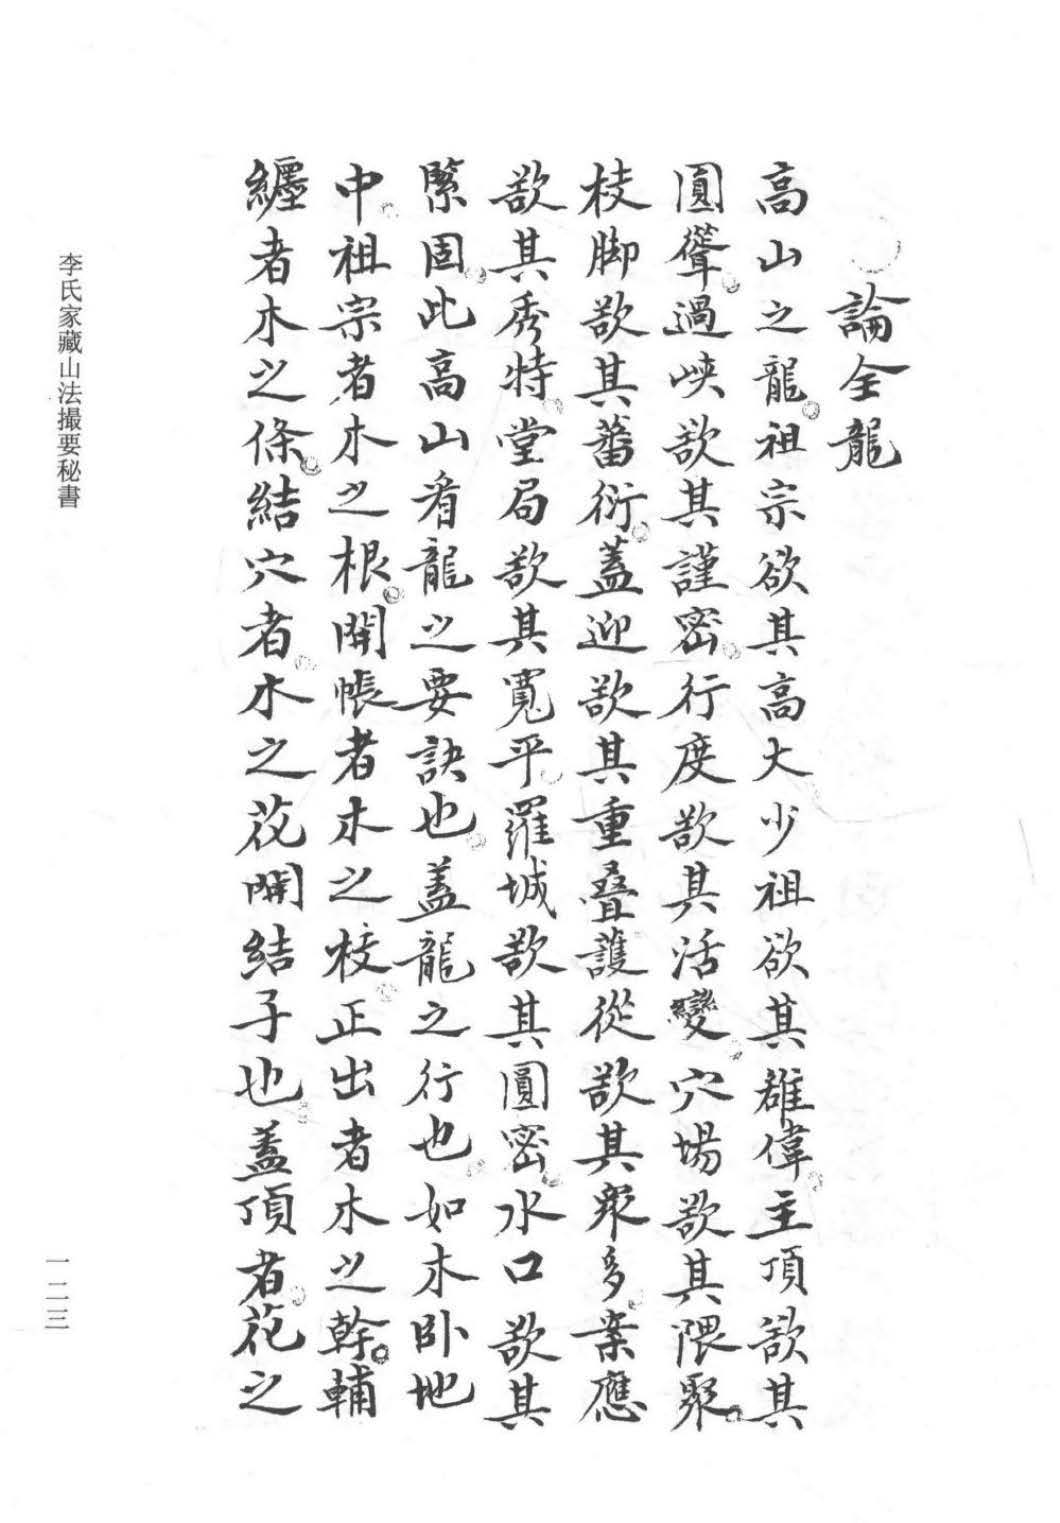 論全龍
高山之龍祖宗欲其高大少祖欲其雄偉主頂欲其
圓聳過峽欲其謹密行度欲其活變穴場欲其隈聚
枝脚欲其蕃衍蓋迎欲其重疊護從欲其衆多案應
欲其秀特堂局欲其寬平羅城欲其圓密水口欲其
緊固此高山看龍之要訣也蓋龍之行也如木卧地
中祖宗者木之根開帳者木之枝正出者木之幹輔
纏者木之條結穴者木之花開結子也蓋頂者花之
李氏家藏山法撮要秘書
一二三